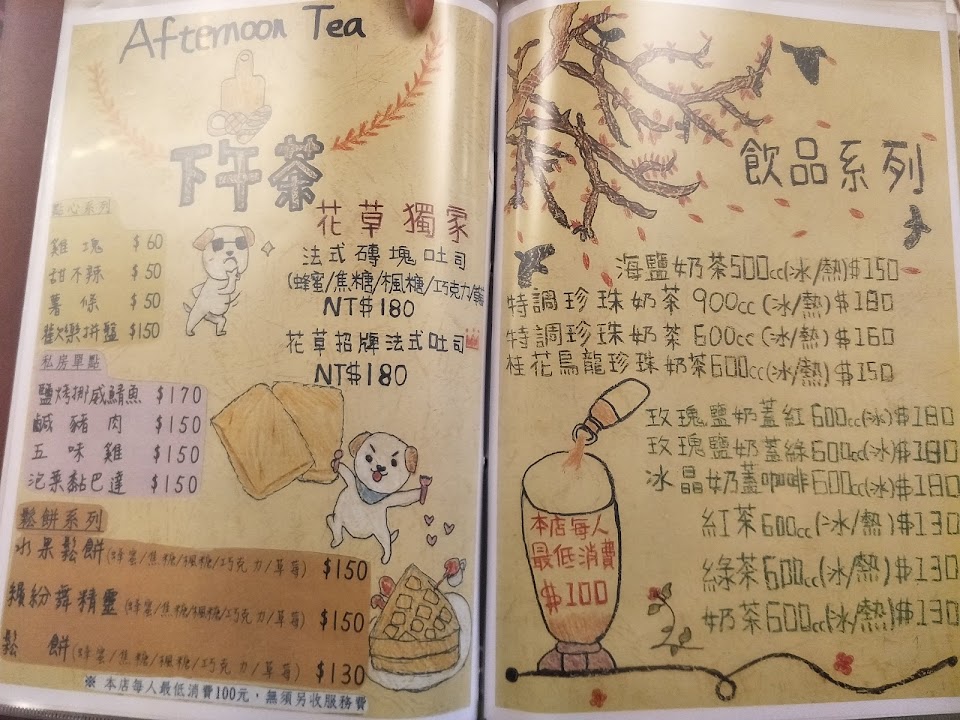 Afternoon Tea
下午茶
點心系列
雞塊 $60
甜不辣 $50
薯條 $50
歡樂拼盤 $150
私房單點
鹽烤挪威鯖魚 $170
鹹豬肉 $150
五味雞 $150
泡菜黏巴達 $150
鬆餅系列
水果鬆餅(蜂蜜/焦糖/楓糖/巧克力/草莓) $150
繽紛舞精靈(蜂蜜/焦糖/楓糖/巧克力/草莓) $150
鬆餅(蜂蜜/焦糖/楓糖/巧克力/草莓) $130
※ 本店每人最低消費100元,無須另收服務費
花草獨家
法式磚塊吐司
(蜂蜜/焦糖/楓糖/巧克力/
NT$180
花草招牌法式吐司
NT$180
飲品系列
海鹽奶茶500cc(冰/熱)$150
特調珍珠奶茶 900cc(冰/熱)$180
特調珍珠奶茶 600cc(冰/熱)$160
桂花烏龍珍珠奶茶600cc(冰/熱)$150
玫瑰鹽奶蓋紅600cc(冰)$180
玫瑰鹽奶蓋綠600cc(冰)$180
冰晶奶蓋咖啡600cc(冰)$180
紅茶600cc(冰/熱)$130
綠茶600cc(冰/熱)$130
奶茶600cc(冰/熱)$130
本店每人
最低消費
$100